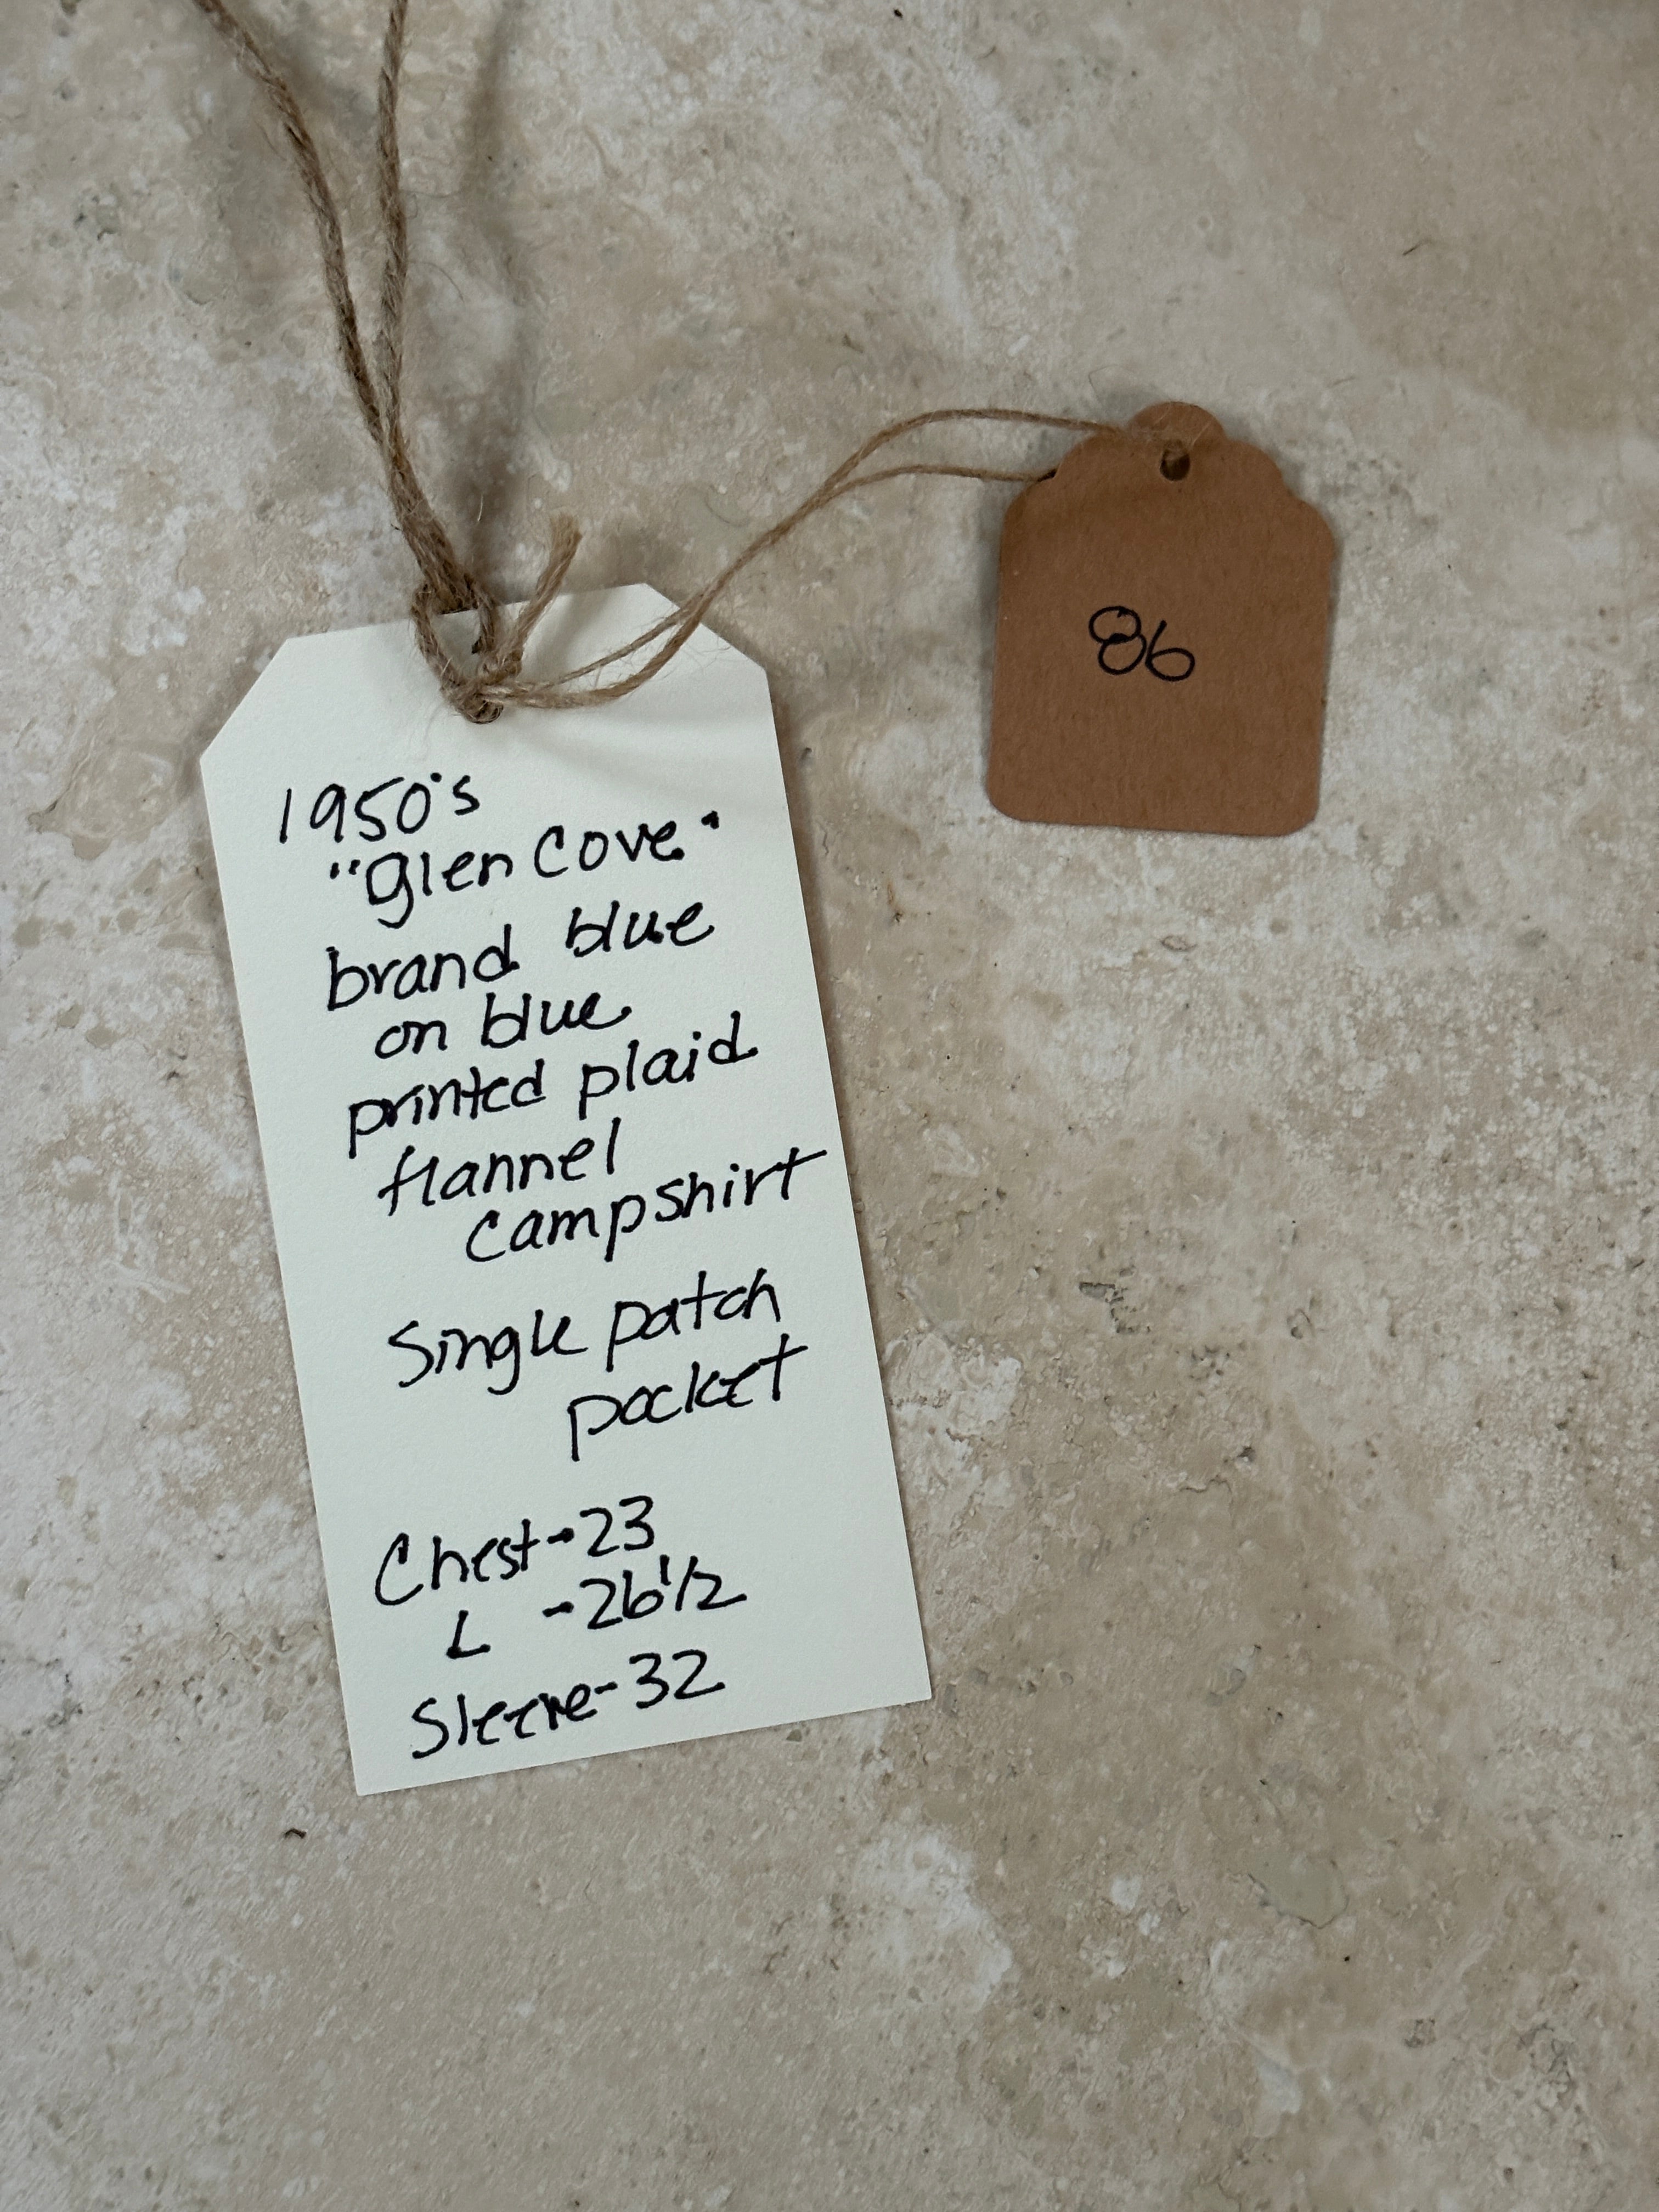 1950's
"Glen Cove"
brand blue
on blue
printed plaid
flannel
campshirt
Single patch
pocket
Chest-23
L -26 1/2
Sleeve-32
86